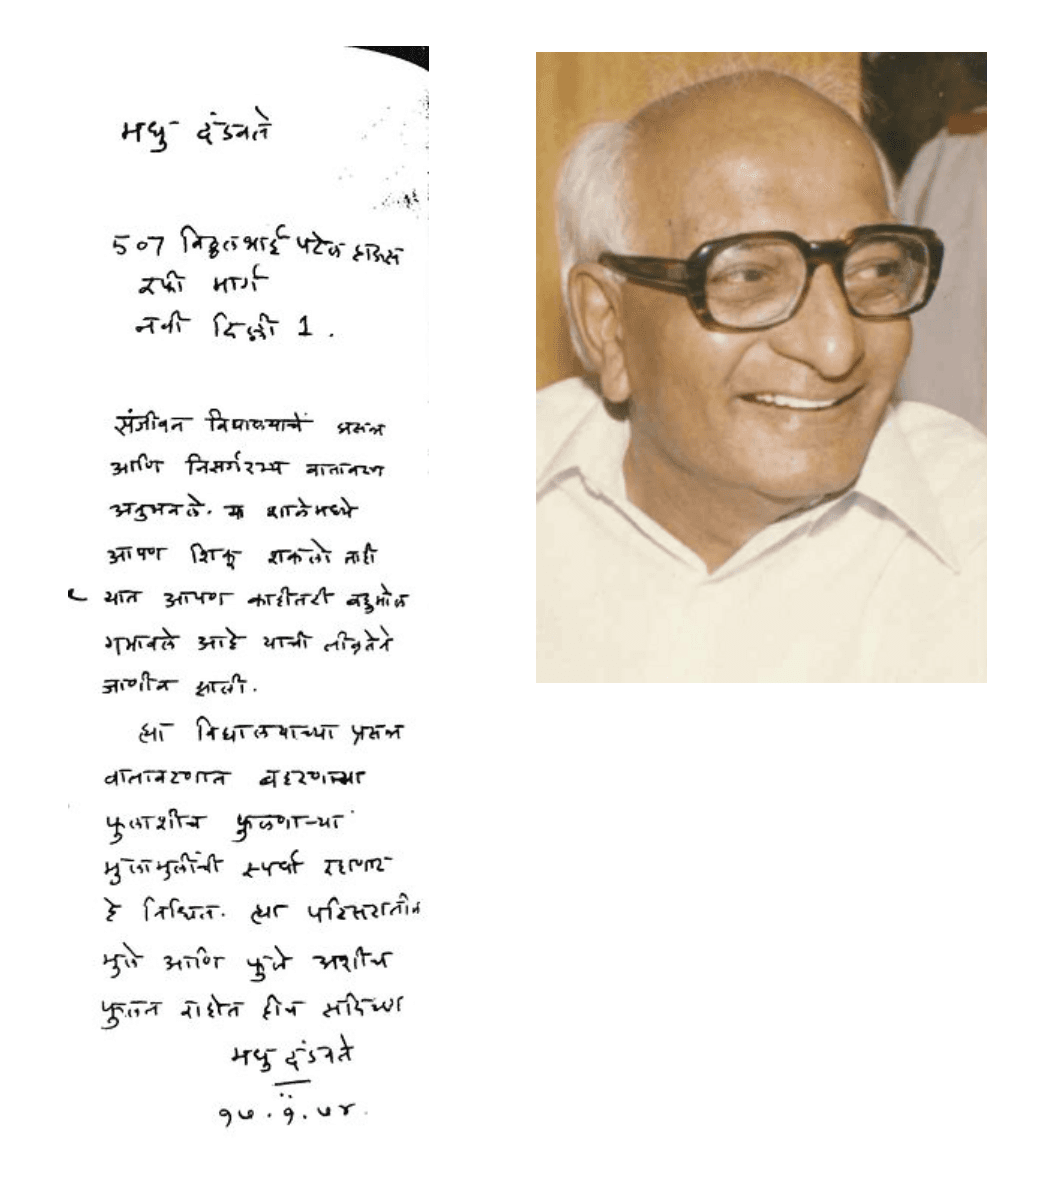 मधु दंडवते
507 विठ्ठलभाई पटेल हाऊस
रफी मार्ग
नवी दिल्ली 1.
संजीवन विद्यालयाचें प्रसन्न
आणि निसर्गरम्य वातावरण
अनुभवले. या शाळेमध्ये
आपण शिकू शकलो नाही
यात आपण काहीतरी बहुमोल
गमावले आहे याची तीव्रतेने
जाणीव झाली.
ह्या विद्यालयाच्या प्रसन्न
वातावरणात बहरणाऱ्या
फुलाशीच फुलणाऱ्या
मुलामुलींची स्पर्धा रहाणार
हे निश्चित. ह्या परिसरातील
मुले आणि फुले अशीच
फुलत राहोत हीच सदिच्छा
मधु दंडवते
१७.१.७४